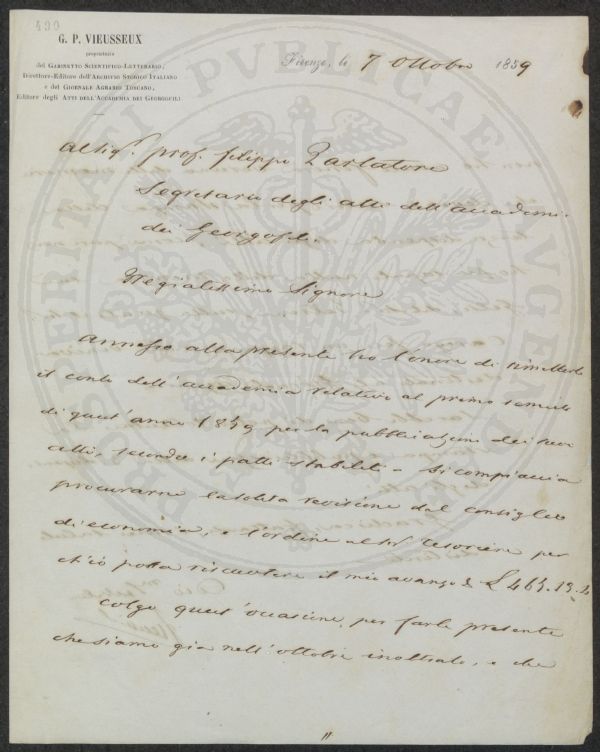 490
G. P. VIEUSSEUX
proprietario
del GABINETTO SCIENTIFICO-LETTERARIO,
Direttore-Editore dell'ARCHIVIO STORICO ITALIANO
e del GIORNALE AGRARIO TOSCANO,
Editore degli ATTI DELL'ACCADEMIA DEI GEORGOFILI
Firenze, lì 7 Ottobre 1859
Al Sigr. prof. Filippo Parlatore
Segretario degli atti dell'accademia
dei Georgofili.
Pregiatissimo Signore
Annesso alla presente ho l'onore di rimetterle
il conto dell'accademia relativo al primo semestre
di quest'anno 1859 per la pubblicazione dei suoi
atti, secondo i patti stabiliti – Si compiaccia
procurarne la solita revisione dal consiglio
di economia, e l'ordine al Sigr tesoriere per
ch'io possa riscuotere il mio avanzo di £ 465.13.2
Colgo quest'occasione, per farle presente
che siamo già nell'ottobre inoltrato, e che
PROSPERITATI PUBLICAE AUGENDAE